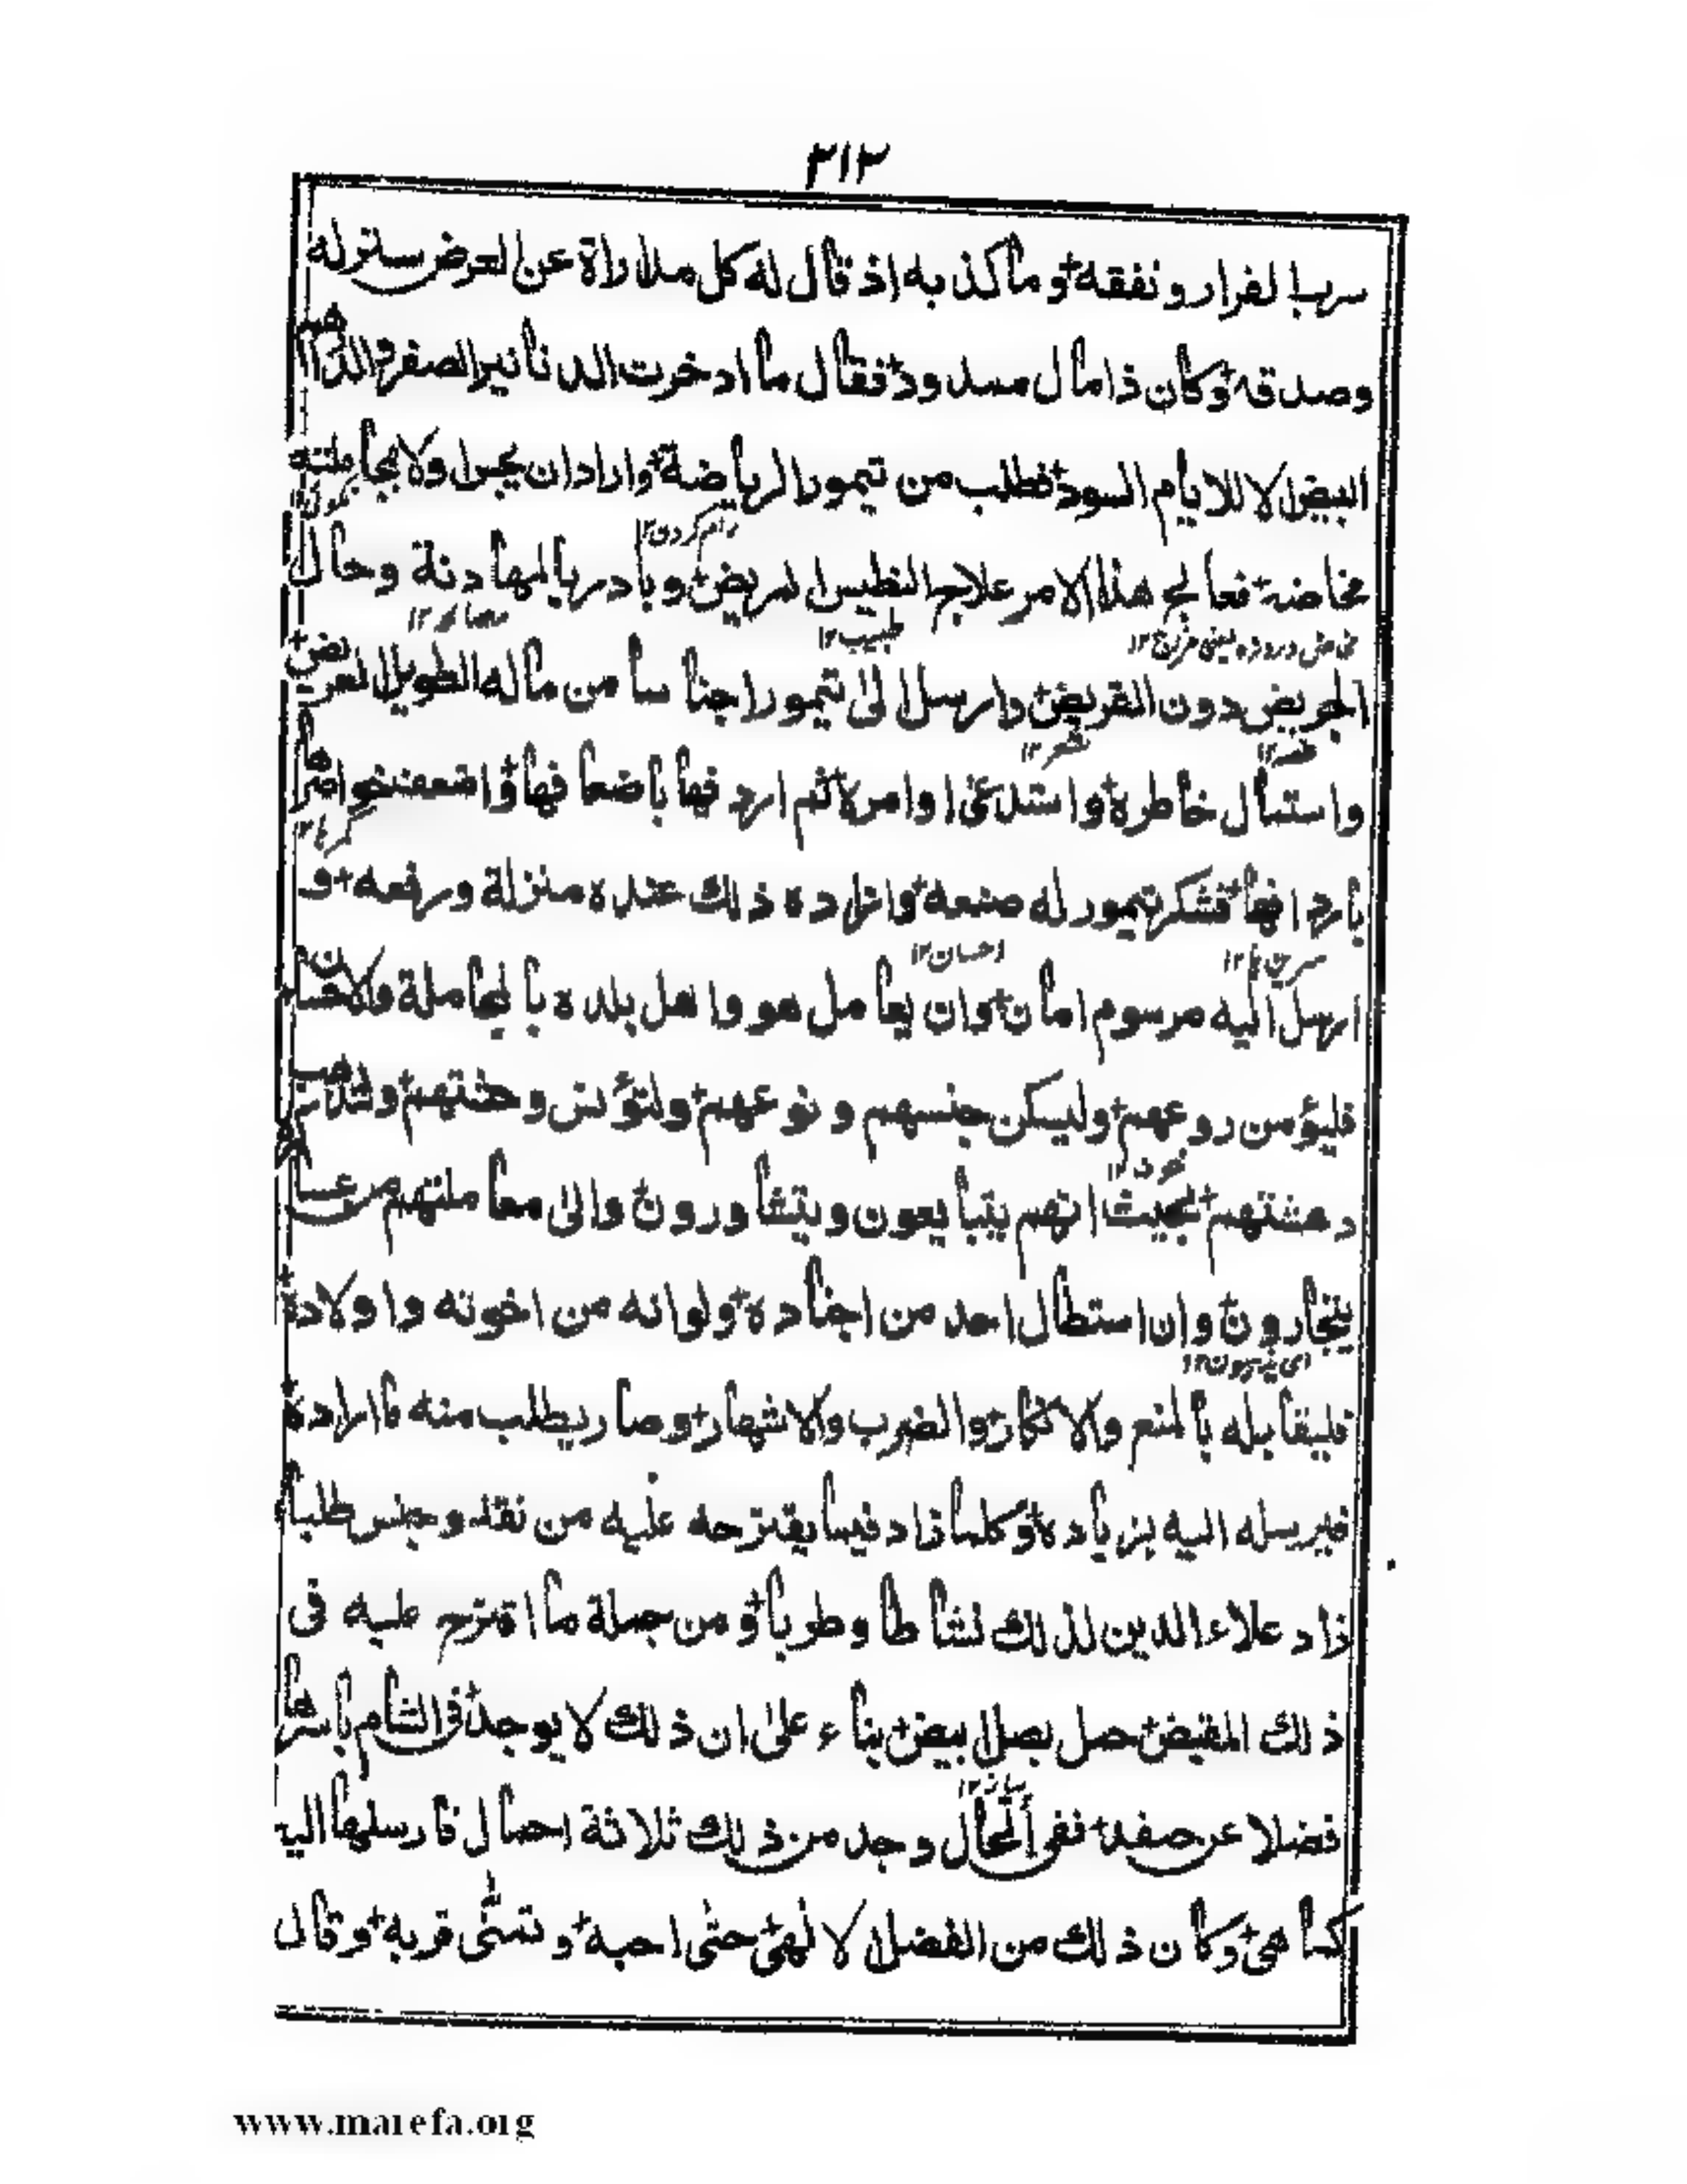 ٣١٣
سربا لفرار ونفقه + وما كذب به اذ قال له كل مداراة عن العرض سترله
وصدقه + وكان ذا مال مسدود + فقال ما ادخرت الدنانير الصفر والدراهم
البيض الا للايام السود + فطلب من تيمور الرياضة + واراد ان يجرا ولا بمجاملته
رام كردن ١٢
مخاضه + فعالج هذا الامر علاج النطيس المريض + وبادر بالمهادنة وحال
طبيب ١٢
الجريض دون القريض + وارسل الى تيمور اجناسا من ماله الطويل العريض +
غصه ١٢ شعر ١٢
واستمال خاطره + واستدعى اوامره + ثم اردفها باضعافها + واضعف خواصرها
باردافها + فشكر تيمور له صنعه + وازاده ذلك عنده منزلة ورفعه + و
سرين ها ١٢ احسان ١٢
ارسل اليه مرسوم امان + وان يعامل هو واهل بلده بالمجاملة والاحسان
فليؤمن روعهم + وليسكن جنسهم ونوعهم + ولتؤنس وحشتهم + ولتذهب
خوف ١٢
دهشتهم + بحيث انهم يتبايعون ويتشاورون + والى معاملتهم من عساكره
يتجارون + وان استطال احد من اجناده + ولوانه من اخوته واولاده +
فليقابله بالمنع والانكار + والضرب والاشهار + وصار يطلب منه ما اراده +
فيرسله اليه بزياده + وكلما زاد فيما يقترحه عليه من نقد وجنس طلبا +
زاد علاء الدين لذلك نشاطا وطربا + ومن جملة ما اقترح عليه فى
ذلك المقيض + حمل بصل ابيض + بناء على ان ذلك لا يوجد + فى الشام باسرها
فضلا عن صفد + ففى الحال وجد من ذلك ثلاثة احمال فارسلها اليه
كما هى + وكان ذلك من الفضل الالهى + حتى احبه + وتمنى قربه + وقال
www.marefa.org